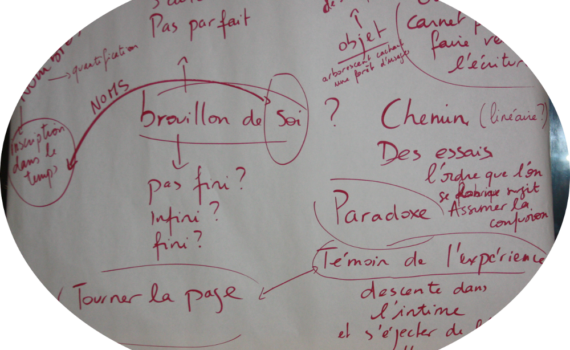 Pas parfait
quantification
NOMS
inscription
dans le
temps
brouillon de soi ?
pas fini ?
Infini ?
fini ?
Tourner la page
objet
arborescent cachant
une forêt d'usages
carnet
faire
l'écritur
Chemin (linéaire?)
Des essais
l'ordre que l'on
se fabrique
Assumer la
confusion
Paradoxe
Témoin de l'expérience
descente dans
l'intime
et s'éjecter de